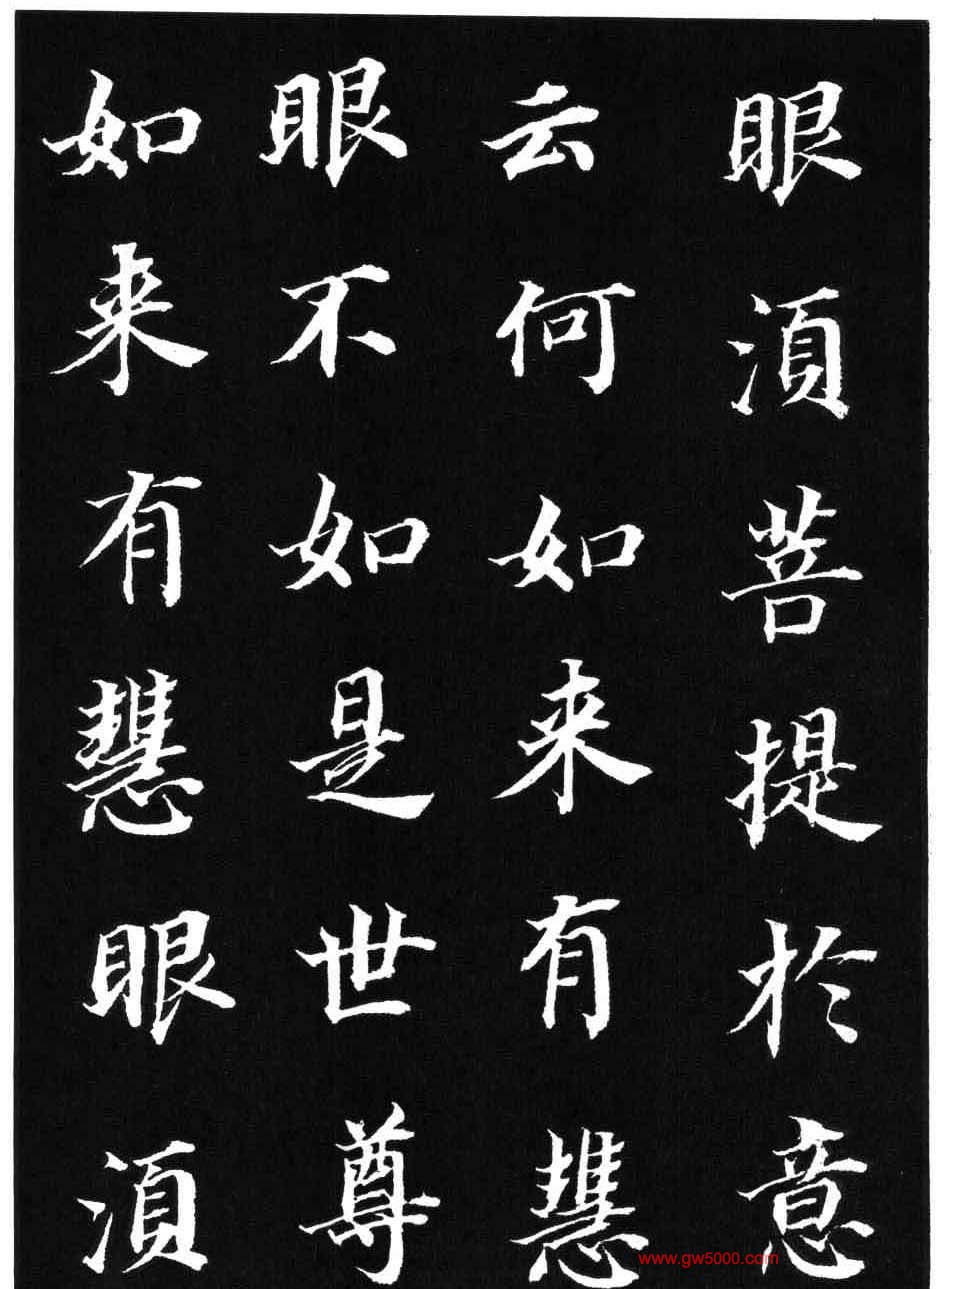 眼湏菩提於意
云何如来有慧
眼不如是世尊
如来有慧眼湏
www.gw5000.com